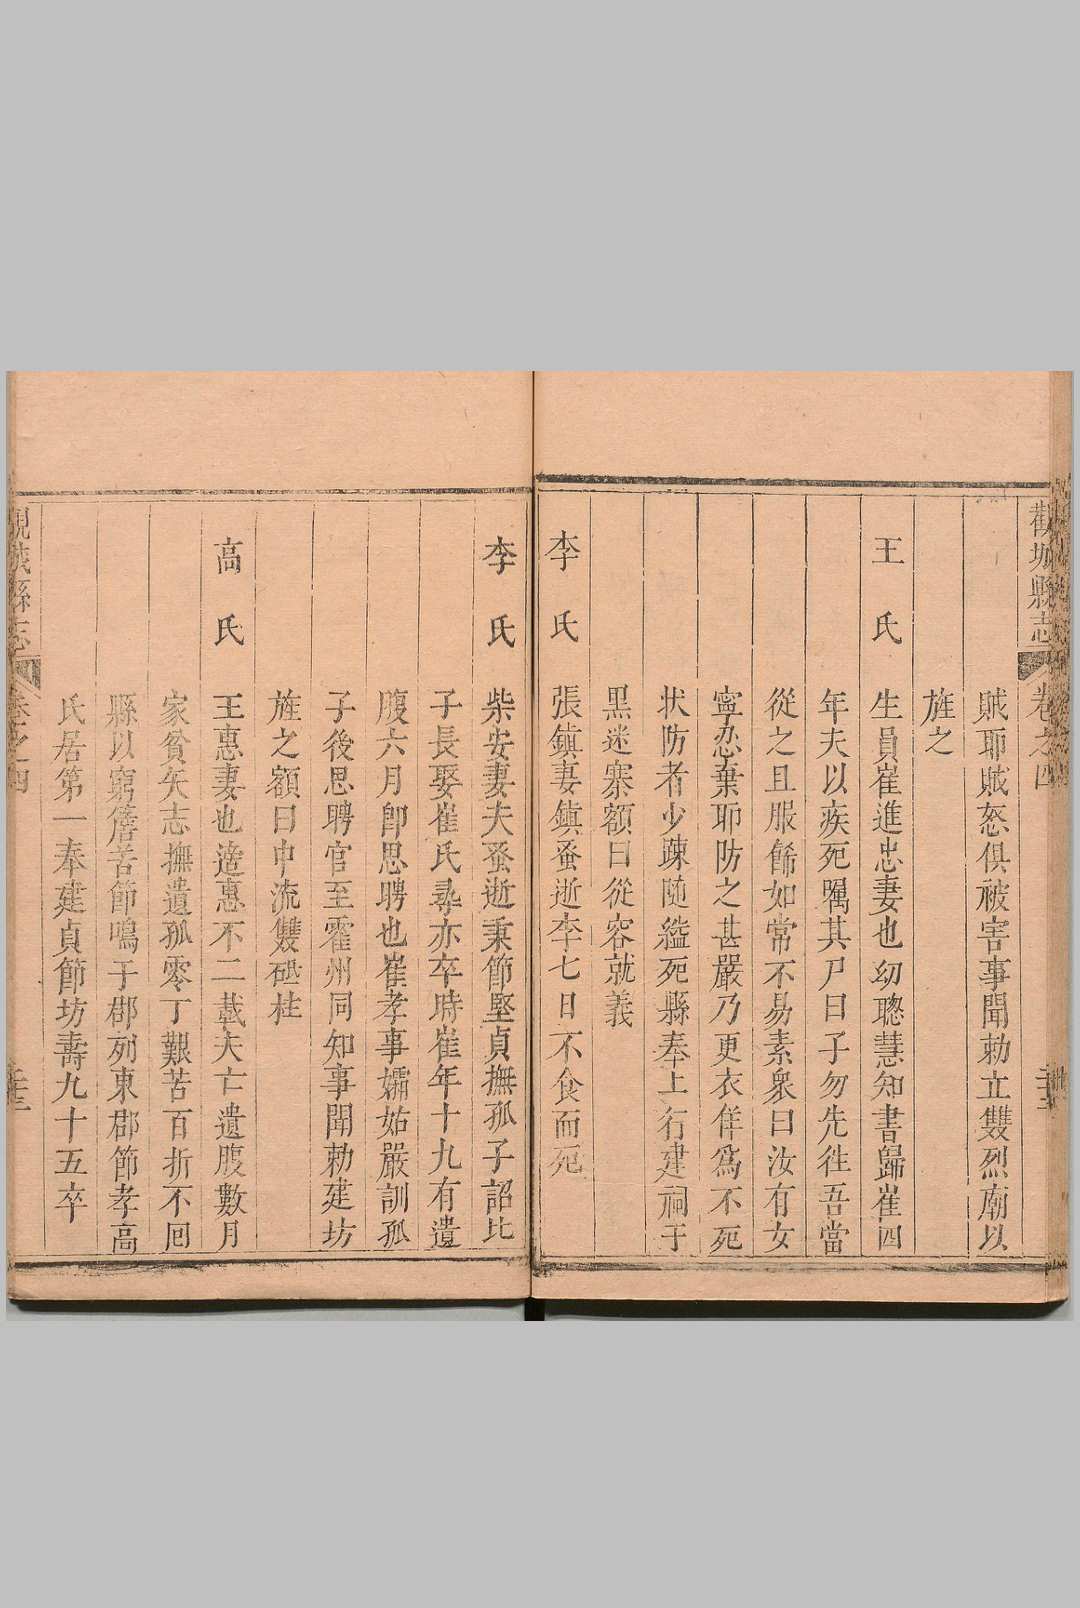 觀城縣志 卷之四
賊耶賊怒俱被害事聞勅立雙烈廟以
旌之
王氏 生員崔進忠妻也幼聰慧知書歸崔四
年夫以疾死囑其尸曰子勿先徃吾當
從之且服餙如常不易素衆曰汝有女
寧忍棄耶防之甚嚴乃更衣佯爲不死
状防者少疎随縊死縣奉上行建祠于
黑迷寨額曰從容就義
李氏 張鎮妻鎮蚤逝李七日不食而死
李氏 柴安妻夫蚤逝秉節堅貞撫孤子詔比
子長娶崔氏尋亦卒時崔年十九有遺
腹六月卽思聘也崔孝事孀姑嚴訓孤
子後思聘官至霍州同知事聞勅建坊
旌之額曰中流雙砥柱
高氏 王惠妻也適惠不二載夫亡遺腹數月
家貧矢志撫遺孤零丁艱苦百折不回
縣以窮簷苦節鳴于郡列東郡節孝高
氏居第一奉建貞節坊壽九十五卒
觀城縣志 卷之四